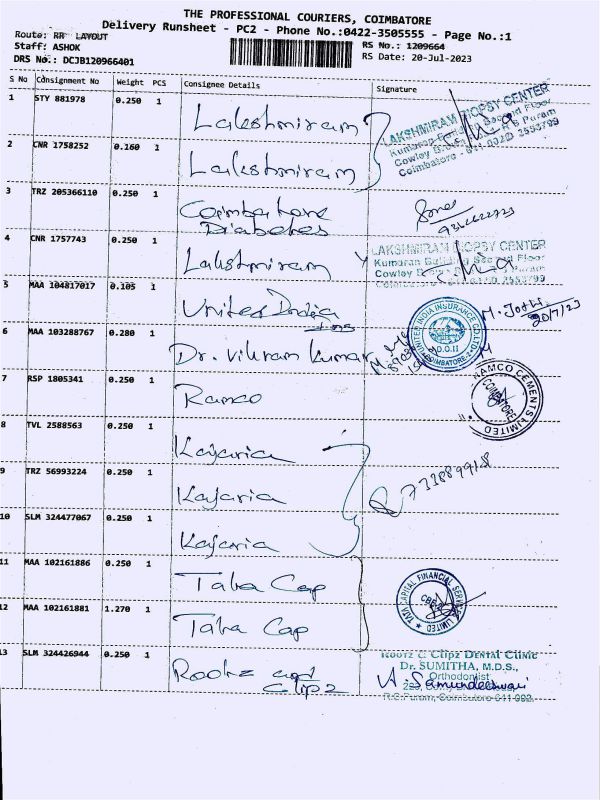 THE PROFESSIONAL COURIERS, COIMBATORE
Delivery Runsheet - PC2 - Phone No.:0422-3505555 - Page No.:1
Route: RR LAYOUT
Staff: ASHOK
RS No.: 1209664
DRS No.: DCJB120966401
RS Date: 20-Jul-2023
S No Consignment No Weight PCS Consignee Details Signature
1 STY 881978 0.250 1 Lakshmiram
LAKSHMIRAM BIOPSY CENTER
2 CNR 1758252 0.160 1 Lakshmiram
3 TRZ 205366110 0.250 1 Coimbatore
Diabetes
4 CNR 1757743 0.250 1 Lakshmiram
LAKSHMIRAM BIOPSY CENTER
Kumaran Building Second Floor
5 MAA 104817017 0.105 1 United India
Ins
UNITED INDIA INSURANCE CO. LTD.
COIMBATORE-2
M. Jothi
20/7/23
6 MAA 103288767 0.280 1 Dr. Vikram Kumar
7 RSP 1805341 0.250 1 Ramco
RAMCO CEMENTS LIMITED
COIMBATORE
8 TVL 2588563 0.250 1 Kajaria
9 TRZ 56993224 0.250 1 Kajaria
10 SLM 324477067 0.250 1 Kajaria
11 MAA 102161886 0.250 1 Tata Cap
TATA CAPITAL FINANCIAL SERVICES LIMITED
12 MAA 102161881 1.270 1 Tata Cap
13 SLM 324426944 0.250 1 Rootz and
Clipz
Rootz & Clipz Dental Clinic
Dr. SUMITHA, M.D.S.,
Orthodontist
A. Samundeeswari
R.S.Puram, Coimbatore 641 002.